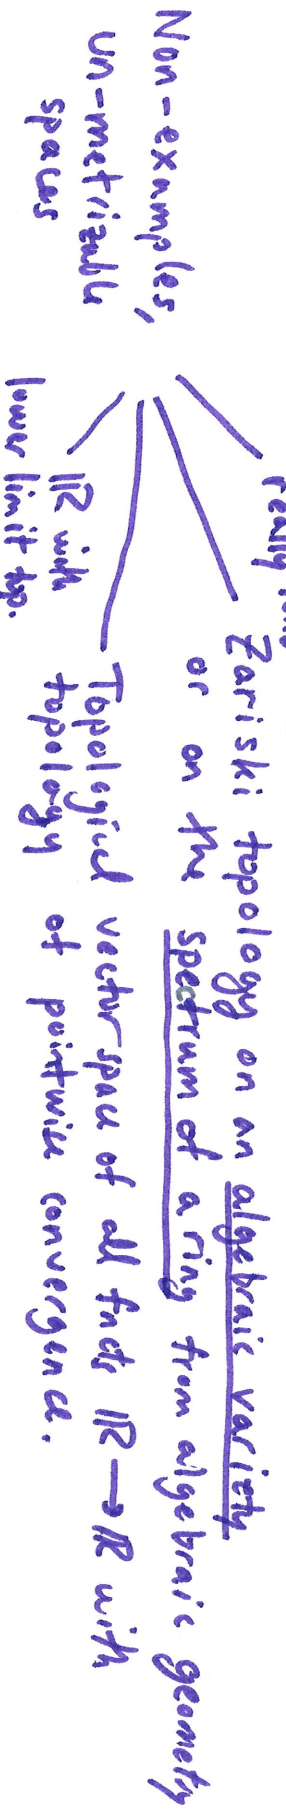 Non-examples,
un-metrizable
spaces
really
Zariski topology on an algebraic variety
or on the spectrum of a ring from algebraic geometry
Topological vector space of all fncts ℝ → ℝ with
topology of pointwise convergence.
ℝ with
lower limit top.